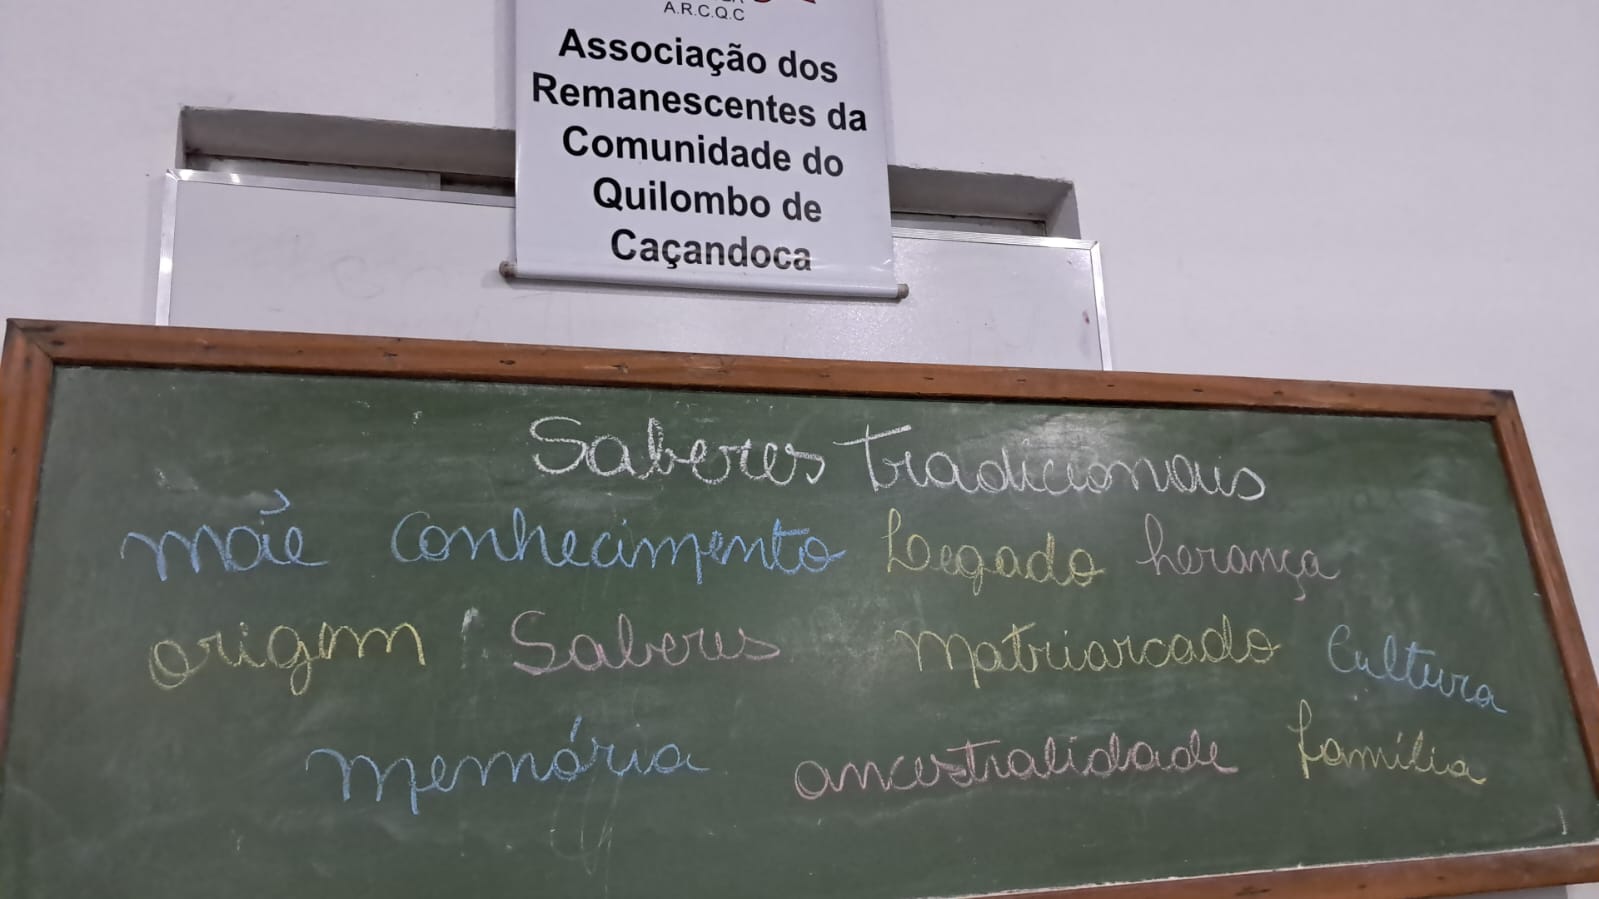 A.R.C.Q.C
Associação dos
Remanescentes da
Comunidade do
Quilombo de
Caçandoca
Saberes tradicionais
mãe conhecimento Legado herança
origem Saberes matriarcado Cultura
memória ancestralidade família